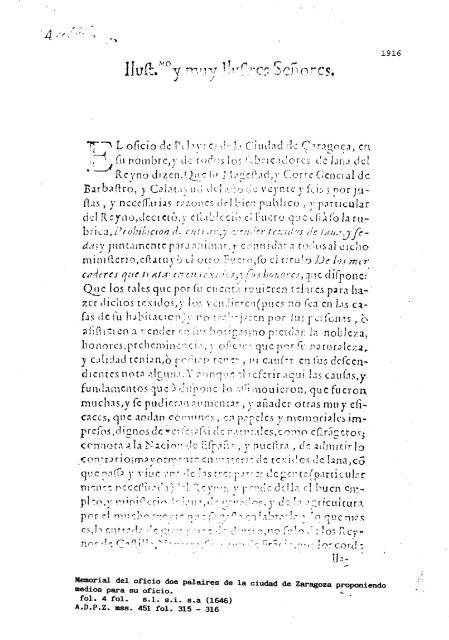 1916
Illust.ᴹᴼ y muy Ilustres Señores.
EL oficio de Pelayres de la Ciudad de Çaragoça, en
su nombre, y de todos los fabricadores de lana del
Reyno dizen. Que su Magestad, y Corte General de
Barbastro, y Calatayud del año de veynte y seis, por ju-
stas, y necessarias razones del bien publico, y particular
del Reyno, decretò, y estableciò el Fuero que està so la ru-
brica, Prohibicion de entrar, y vender texidos de lana, y se-
da: y juntamente para animar, y combidar a todos al dicho
ministerio, estatuyò el otro Fuero, so el titulo De los mer
caderes que tratan en texidos, y sus honores, que dispone:
Que los tales que por su cuenta tuuieren telares para ha-
zer dichos texidos, y los vendieren (pues no sea en las ca-
sas de su habitacion) y no trabajaren por sus personas, ò
assistieren a vender en sus botigas, no pierdan la nobleza,
honores, preheminencias, y oficios que por su naturaleza,
y calidad tenian, ò podian tener, ni causar en sus descen-
dientes nota alguna. Y aunque el referir aqui las causas, y
fundamentos que a disponerlo assi mouieron, que fueron
muchas, y se pudieran aumentar, y añadir otras muy efi-
caces, que andan comunes, en papeles y memoriales im-
pressos, dignos de de naturales, como estrãgeros;
connota a la Nacion de España, y nuestra, de admitir lo
contrario; mayormente en materia de texidos de lana, cõ
que passa y viue una de las tres partes de gente (particular
mente necessitada) del Reyno; y pende della el buen em-
pleo, y ministerio de lana, de ganados, y de la agricultura
por el mucho que en y lo que mas
es, la entrada de de dinero, no solo de los Rey-
nos de Castilla, Nauarra, de Frãcia, por los cord
lla-
Memorial del oficio doe palaires de la ciudad de Zaragoza proponiendo
medios para su oficio.
fol. 4 fol. s.l. s.i. s.a (1646)
A.D.P.Z. mss. 451 fol. 315 - 316